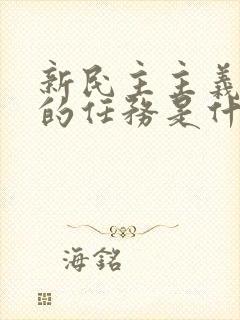 新民主主義
的任務是什
海銘